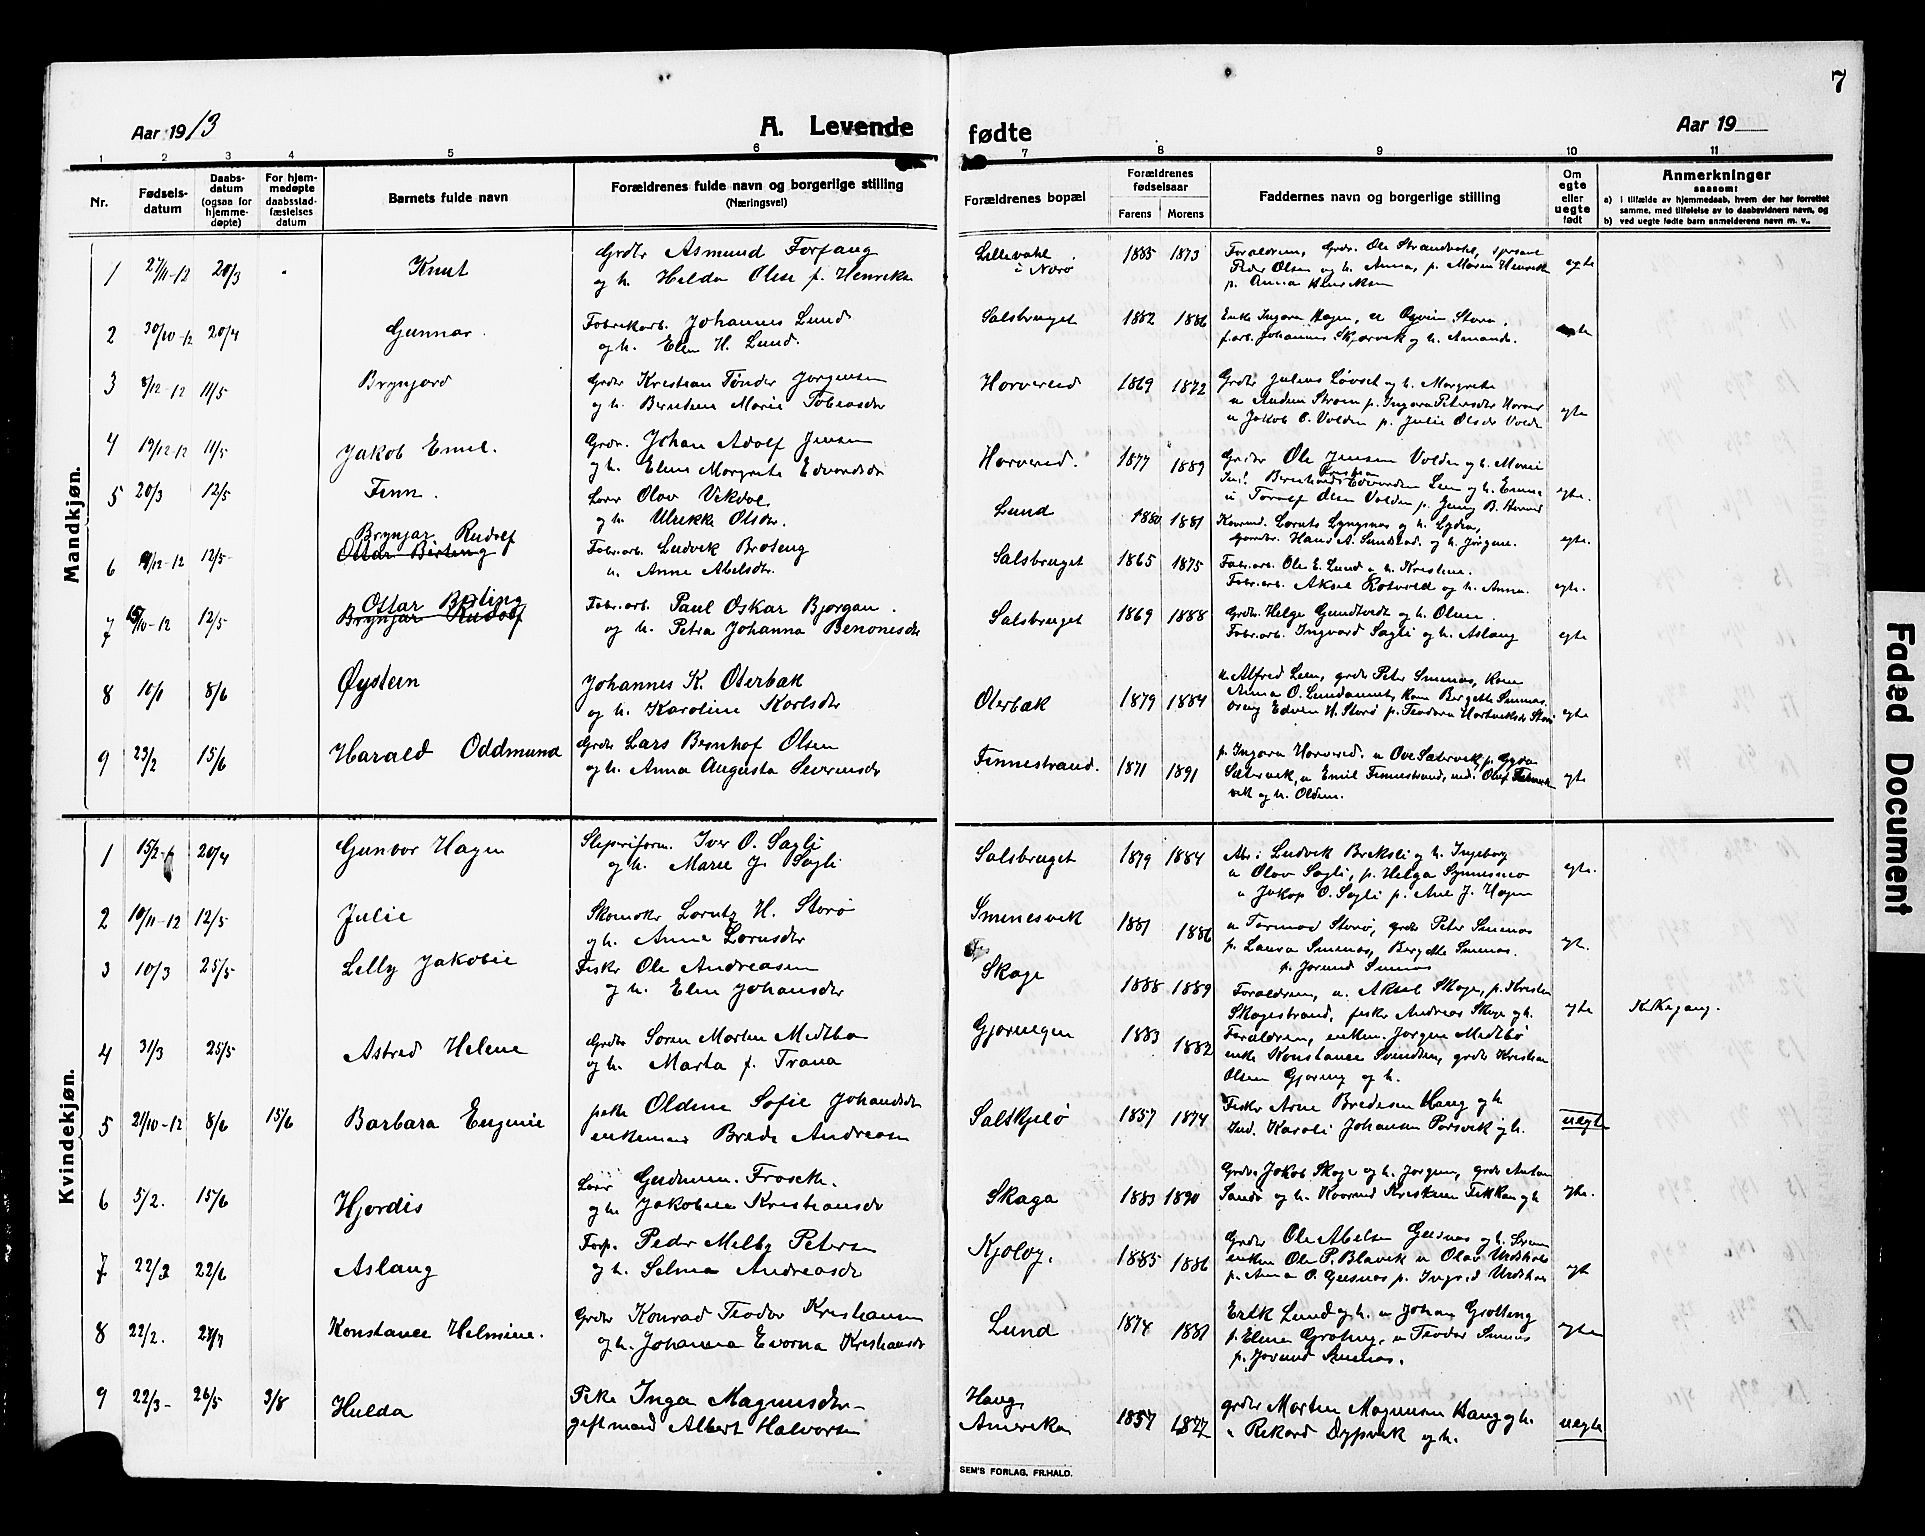 7
Aar 1913
A. Levende
fødte
Aar 19
1 2 3 4 5 6 7 8 9 10 11
Nr.
Fødsels-
datum
Daabs-
datum
(ogsaa for
hjemme-
døpte)
For hjem-
medøpte
daabsstad-
fæstelses
datum
Barnets fulde navn
Forældrenes fulde navn og borgerlige stilling
(Næringsvei)
Forældrenes bopæl
Forældrenes
fødselsaar
Farens Morens
Faddernes navn og borgerlige stilling
Om
egte
eller
uegte
født
Anmerkninger
saasom:
a) i tilfælde av hjemmedaab, hvem der har forrettet
samme, med tilføielse av to daabsvidners navn, og
b) ved uegte fødte barn anmelderens navn m. v..
Mandkjøn.
1 27/11-12 20/3 Knut Grdbr Asmund Forfang
og h. Helda Olsen f. Henriks
Lillevahl
i Nærø
1885 1873
Forældrene, Grdr. Ole Strandvahl,
Peder Olsen og h. Anna, p. Maren Henriks
p. Anna Henriksen
egte
2 30/10-12 20/4 Gunnar. Fabrikarb. Johannes Lund
og h. Elen H. Lund.
Salsbruget 1882 1886
Enke Ingora Hagen, u Storø.
f.arb. Johannes Skjærvik og h. Amanda.
3 8/12-12 11/5 Brynjord Grdbr Kristian Tønder Jørgensen
og h. Berntine Marie Tobiasdtr
Horvereid 1869 1872
Grdbr Julius Løvset og h. Margrete
u Strøm p. Ingora Petersdtr
u Jakob O. Volden p. Julie Olsdtr Volde
egte
4 19/12-12 11/5 Jakob Emil. Grdr. Johan Adolf Jensen
og h. Eline Margrete Edvardsdtr
Horvereid. 1877 1889
Grdbr Ole Jensen Volden og h. Marie
Bernhard Kristian Edvardsen Lien og h. Emma
u Toralf Olsen Volden p. Jenny B. Horver
egte.
5 20/3 12/5 Finn. Lærer Olav Vikdal
og h. Ulrikke Olsdtr.
Lund 1880 1881
Lorents Lyngsnes og h. Lydia,
Hans A. Sundstad, og h. Jørgine.
egte.
6 9/12-12 12/5 Brynjar Rudolf
Ottar Birting
Fabr.arb. Ludvik Bråteng
u. Anne Abelsdtr.
Salsbruget 1865 1875
Fabr.arb. Ole E. Lund u h. Kristine.
Fabr.arb. Aksel Rotvold og h. Anna.
egte.
7 15/10-12 12/5 Ottar Birting
Brynjar Rudolf
Fabr.arb. Paul Oskar Bjørgan.
og h. Petra Johanna Benonisdtr
Salsbruget 1869 1888
Grdbr. Helge Gundtvedt og h. Oline.
Fabr.arb. Ingvard Sagli og h. Aslaug
egte
8 10/1 8/6 Øystein Johannes K. Oterbak
og h. Karoline Karlsdtr
Oterbak 1879 1884
u. Alfred Lien, grdr Peter Smines, kone
Anna O. Lundamnet, kone Bergette Smines.
og Edvin H. Storø p. Teodora Storø
egte
9 23/2 15/6 Harald Oddmund Grdr Lars Bernhof Olsen
og h. Anna Augusta Severinsdtr
Finnestrand. 1871 1891
p. Ingora Horvereid. u Ove Sætervik, p. Gyda
Sætervik, u Emil Finnestrand, Oluf
vik og h. Oldine.
egte
Kvindekjøn.
1 15/2 20/4 Gunvor Hagen Sliperiform. Iver O. Sagli
og h. Marie J. Sagli
Salsbruget 1879 1884
Arb: Ludvik Breksli og h. Ingeborg
u Olav Sagli, p. Helga Synnesmo
u Jakop O. Sagli p. Ane J. Hagen
egte.
2 19/11-12 12/5 Julie Skomakr Lorntz H. Storø
og h. Anne Lornsdtr
Smenesvik 1881 1886
u Tormod Storø, grdr Peter Smines
p. Laura Smines, Bergette Smines.
p. Jorund Smines
egt.
3 10/3 25/5 Lilly Jakobie Fiskr Ole Andreasen
og h. Elen Johansdtr
Skage 1888 1889
Forældrene, u. Aksel Skage, p. Kristin
Skagestrand, fiskr Andreas Skage og h.
egte
K. Kegang.
4 31/3 25/5 Astrid Helene Grdbr Søren Martin Medtbø
og h. Marta f. Trana
Gjæringen 1883 1882
Forældrene, enkem. Jørgen Medtbø
enke Konstance Svendsen, grdr Kristian
Olsen Gjæring og h.
5 21/10-12 8/6 15/6 Barbara Eugenie pike Oldine Sofie Johansdtr
enkeman Brede Andreasen
Salskjelø 1857 1874
Fiskr Arne Bredesen Haug og h
Ind. Karoli Johansen Porsvik og h.
uegte
6 5/2. 15/6 Hjørdis Lærer Gudmun. Froseth.
og h. Jakobine Kristiansdtr
Skaga 1883 1890
Grdbr Jakob Skage og h. Jørgine, grdr Anton
Sandø og h. Kristian Fikkan og h
egte.
7 22/3 22/6 Aslaug Forp. Peder Melby Petersen
og h. Selma Andreasdtr
Kjøløy. 1885 1886
Grdbr Ole Abelsen Geisnes og h.
enkem Ole P. Blavik u Olav
p. Anna O. Geisnes p. Ingrid
egt
8 22/2. 27/7 Konstance Helmine. Grdbr Konrad Teodor Kristiansen
og h. Johanna Evorna Kristiansdtr
Lund 1874 1881
Erik Lund og h. u Johan Grøtting
p. Eline Grøting, u Teodor Smines
p. Jorund Smines.
egte
9 22/3- 26/5 3/8 Hulda Pike Inga Magnusdtr-
gift mand Albert Halvorsen
Haug
Amerika
1857 1877
grdbr Martin Magnusen Haug og h.
u Rikard Dypvik og h.
uegte
SEM'S FORLAG, FR.HALD.
Faded Document